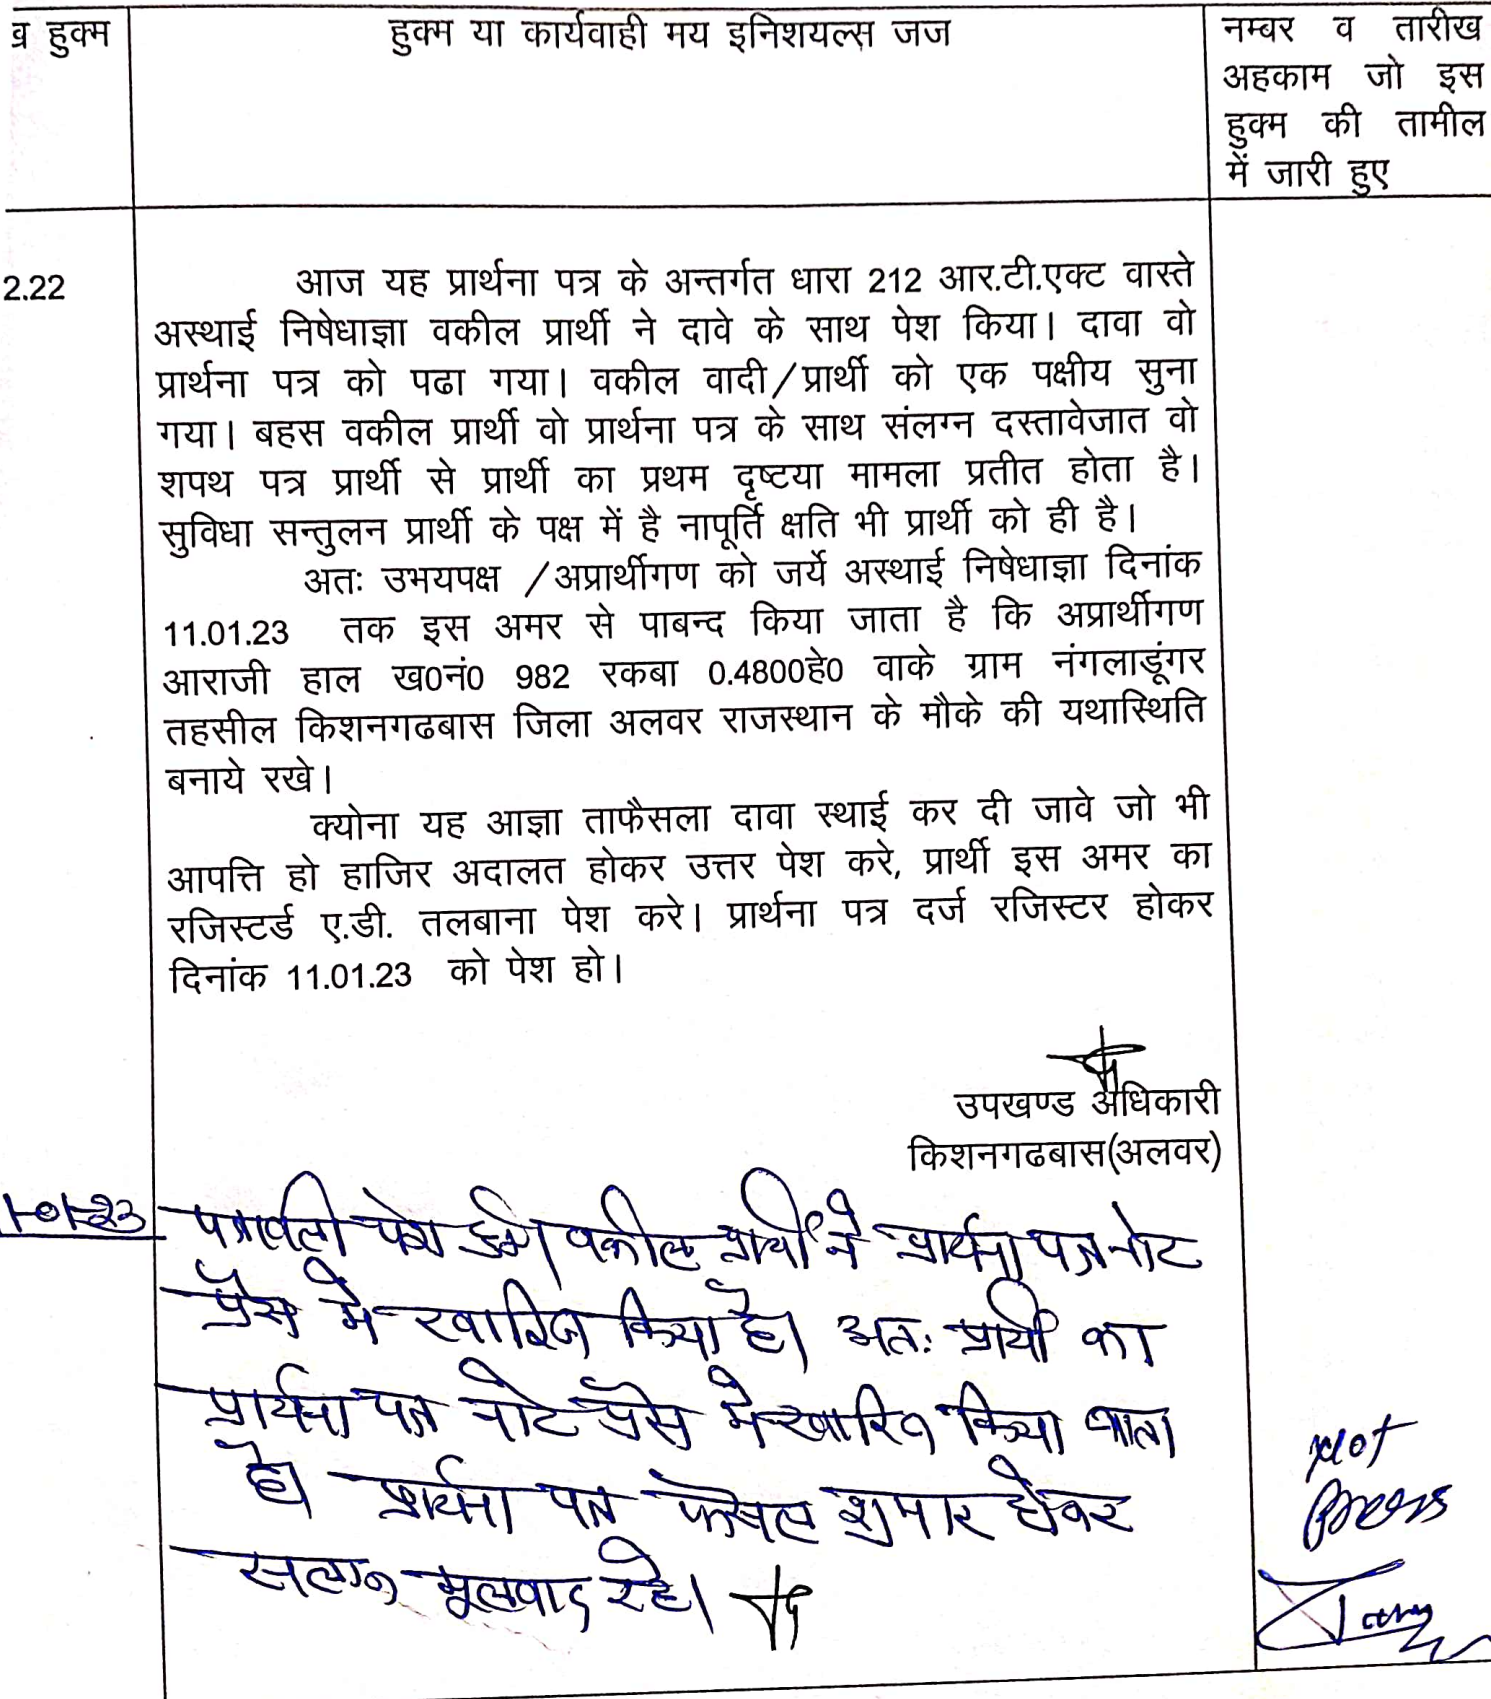 व हुक्म
हुक्म या कार्यवाही मय इनिशयल्स जज
नम्बर व तारीख
अहकाम जो इस
हुक्म की तामील
में जारी हुए
2.22
आज यह प्रार्थना पत्र के अन्तर्गत धारा 212 आर.टी.एक्ट वास्ते
अस्थाई निषेधाज्ञा वकील प्रार्थी ने दावे के साथ पेश किया। दावा वो
प्रार्थना पत्र को पढा गया। वकील वादी/प्रार्थी को एक पक्षीय सुना
गया। बहस वकील प्रार्थी वो प्रार्थना पत्र के साथ संलग्न दस्तावेजात वो
शपथ पत्र प्रार्थी से प्रार्थी का प्रथम दृष्टया मामला प्रतीत होता है।
सुविधा सन्तुलन प्रार्थी के पक्ष में है नापूर्ति क्षति भी प्रार्थी को ही है।
अतः उभयपक्ष /अप्रार्थीगण को जर्ये अस्थाई निषेधाज्ञा दिनांक
11.01.23 तक इस अमर से पाबन्द किया जाता है कि अप्रार्थीगण
आराजी हाल ख0नं0 982 रकबा 0.4800हे0 वाके ग्राम नंगलाडूंगर
तहसील किशनगढबास जिला अलवर राजस्थान के मौके की यथास्थिति
बनाये रखे।
क्योना यह आज्ञा ताफैसला दावा स्थाई कर दी जावे जो भी
आपत्ति हो हाजिर अदालत होकर उत्तर पेश करे, प्रार्थी इस अमर का
रजिस्टर्ड ए.डी. तलबाना पेश करे। प्रार्थना पत्र दर्ज रजिस्टर होकर
दिनांक 11.01.23 को पेश हो।
उपखण्ड अधिकारी
किशनगढबास(अलवर)
1-01-23
पत्रावली पेश हुई। वकील प्रार्थी ने प्रार्थना पत्र नोट
प्रेस में खारिज किया है। अतः प्रार्थी का
प्रार्थना पत्र नोट प्रेस में खारिज किया जाता
है। प्रार्थना पत्र फैसल शुमार होकर
सलग्न मूलवाद रहे।
Not
Press